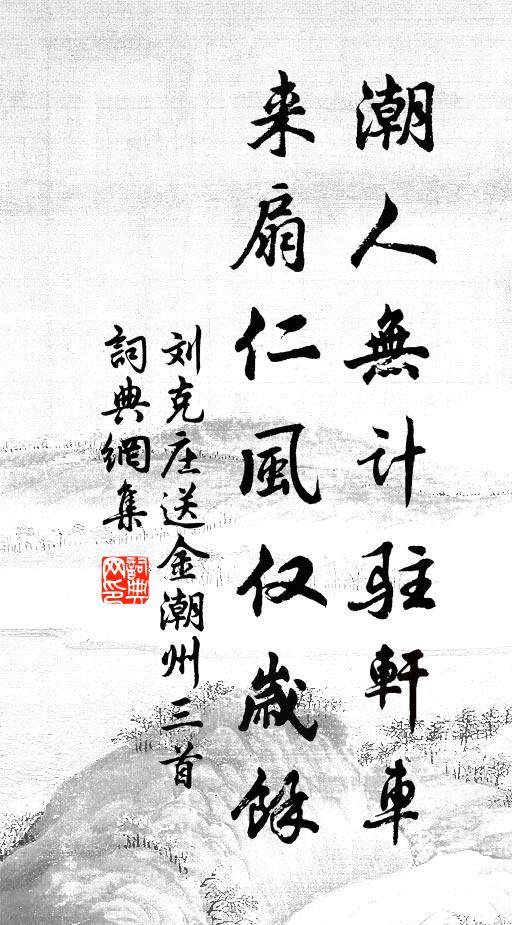 潮人無计駐軒車
来扇仁風仅歲餘
刘克庄送金潮州三首
詞典網集
詞典
网印